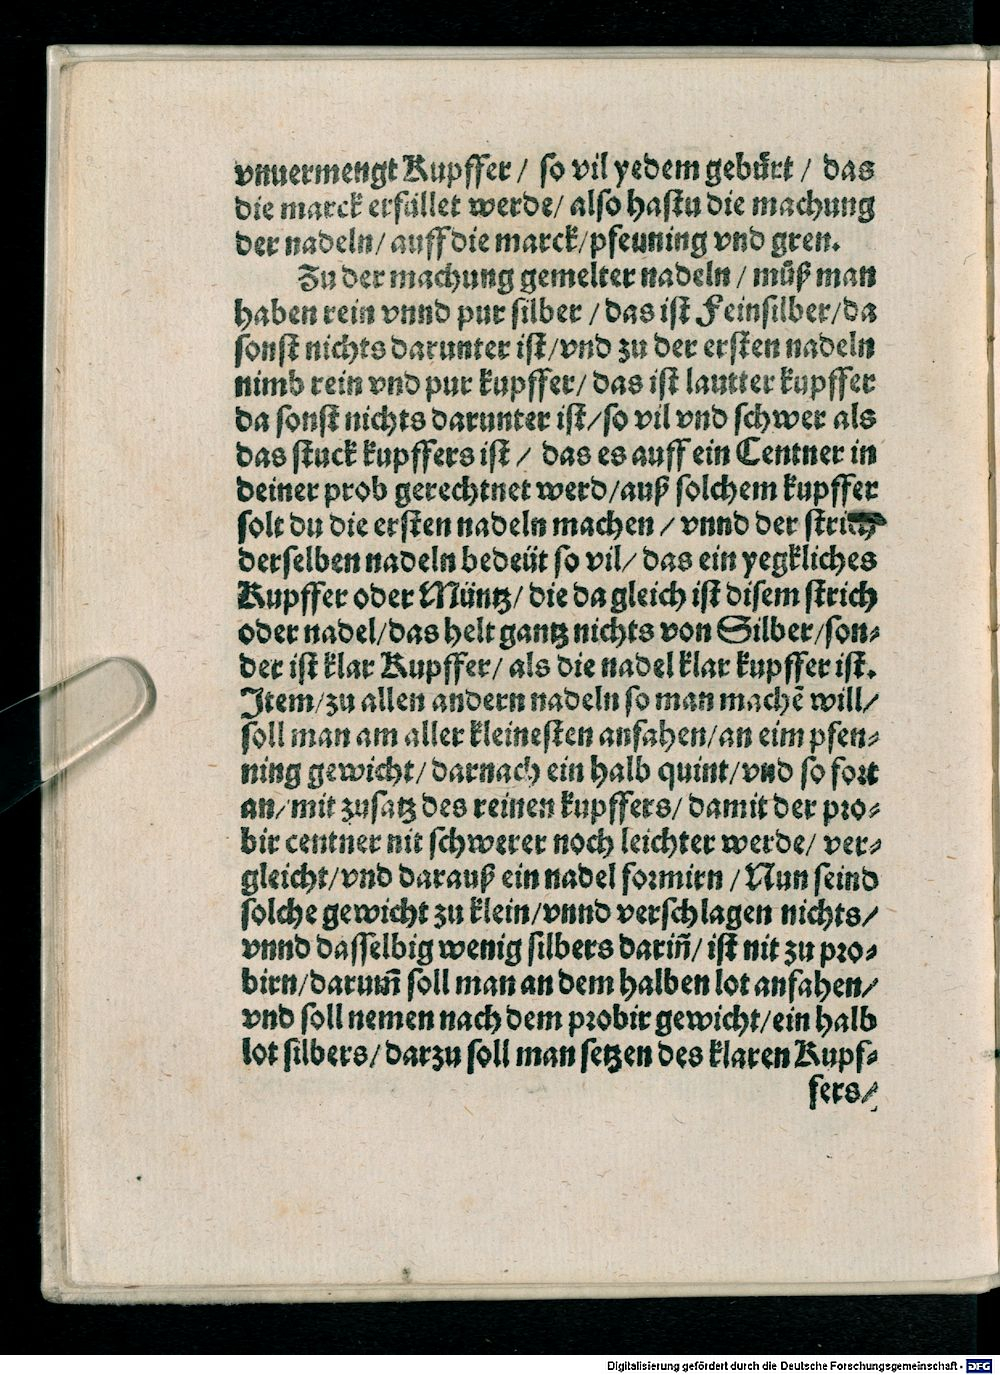 vnuermengt Kupffer / so vil yedem gebürt / das
die marck erfüllet werde / also hastu die machung
der nadeln / auff die marck / pfenning vnd gren.
Zu der machung gemelter nadeln / můß man
haben rein vnnd pur silber / das ist Feinsilber / da
sonst nichts darunter ist / vnd zu der ersten nadeln
nimb rein vnd pur kupffer / das ist lautter kupffer
da sonst nichts darunter ist / so vil vnd schwer als
das stuck kupffers ist / das es auff ein Centner in
deiner prob gerechtnet werd / auß solchem kupffer
solt du die ersten nadeln machen / vnnd der strich
derselben nadeln bedeüt so vil / das ein yegkliches
Kupffer oder Müntz / die da gleich ist disem strich
oder nadel / das helt gantz nichts von Silber / son-
der ist klar Kupffer / als die nadel klar kupffer ist.
Item / zu allen andern nadeln so man machē will /
soll man am aller kleinesten anfahen / an eim pfen-
ning gewicht / darnach ein halb quint / vnd so fort
an / mit zusatz des reinen kupffers / damit der pro-
bir centner nit schwerer noch leichter werde / ver-
gleicht / vnd darauß ein nadel formirn / Nun seind
solche gewicht zu klein / vnnd verschlagen nichts /
vnnd dasselbig wenig silbers dariñ / ist nit zu pro-
birn / darum̃ soll man an dem halben lot anfahen /
vnd soll nemen nach dem probir gewicht / ein halb
lot silbers / darzu soll man setzen des klaren Kupf-
fers /
Digitalisierung gefördert durch die Deutsche Forschungsgemeinschaft - DFG